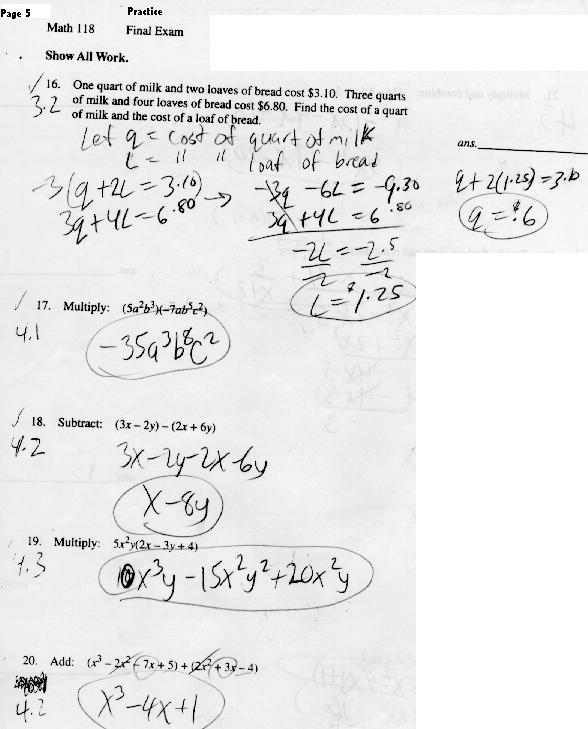 Page 5
Practice
Math 118 Final Exam
Show All Work.
✓ 16. One quart of milk and two loaves of bread cost $3.10. Three quarts
3.2 of milk and four loaves of bread cost $6.80. Find the cost of a quart
of milk and the cost of a loaf of bread.
Let q = cost of quart of milk
L = " " loaf of bread
ans.
-3(q+2L=3.10) → -3q -6L = -9.30
3q+4L=6.80
3q +4L = 6.80
-2L = -2.5
-2 -2
L = $1.25
q + 2(1.25) = 3.10
q = $.6
✓ 17. Multiply: (5a²b³)(-7ab⁵c²)
4.1
-35a³b⁸c²
✓ 18. Subtract: (3x - 2y) - (2x + 6y)
4.2
3x-2y-2x-6y
x-8y
19. Multiply: 5x²y(2x - 3y + 4)
4.3
10x³y -15x²y²+20x²y
20. Add: (x³ - 2x² - 7x + 5) + (2x² + 3x - 4)
4.2
x³-4x+1